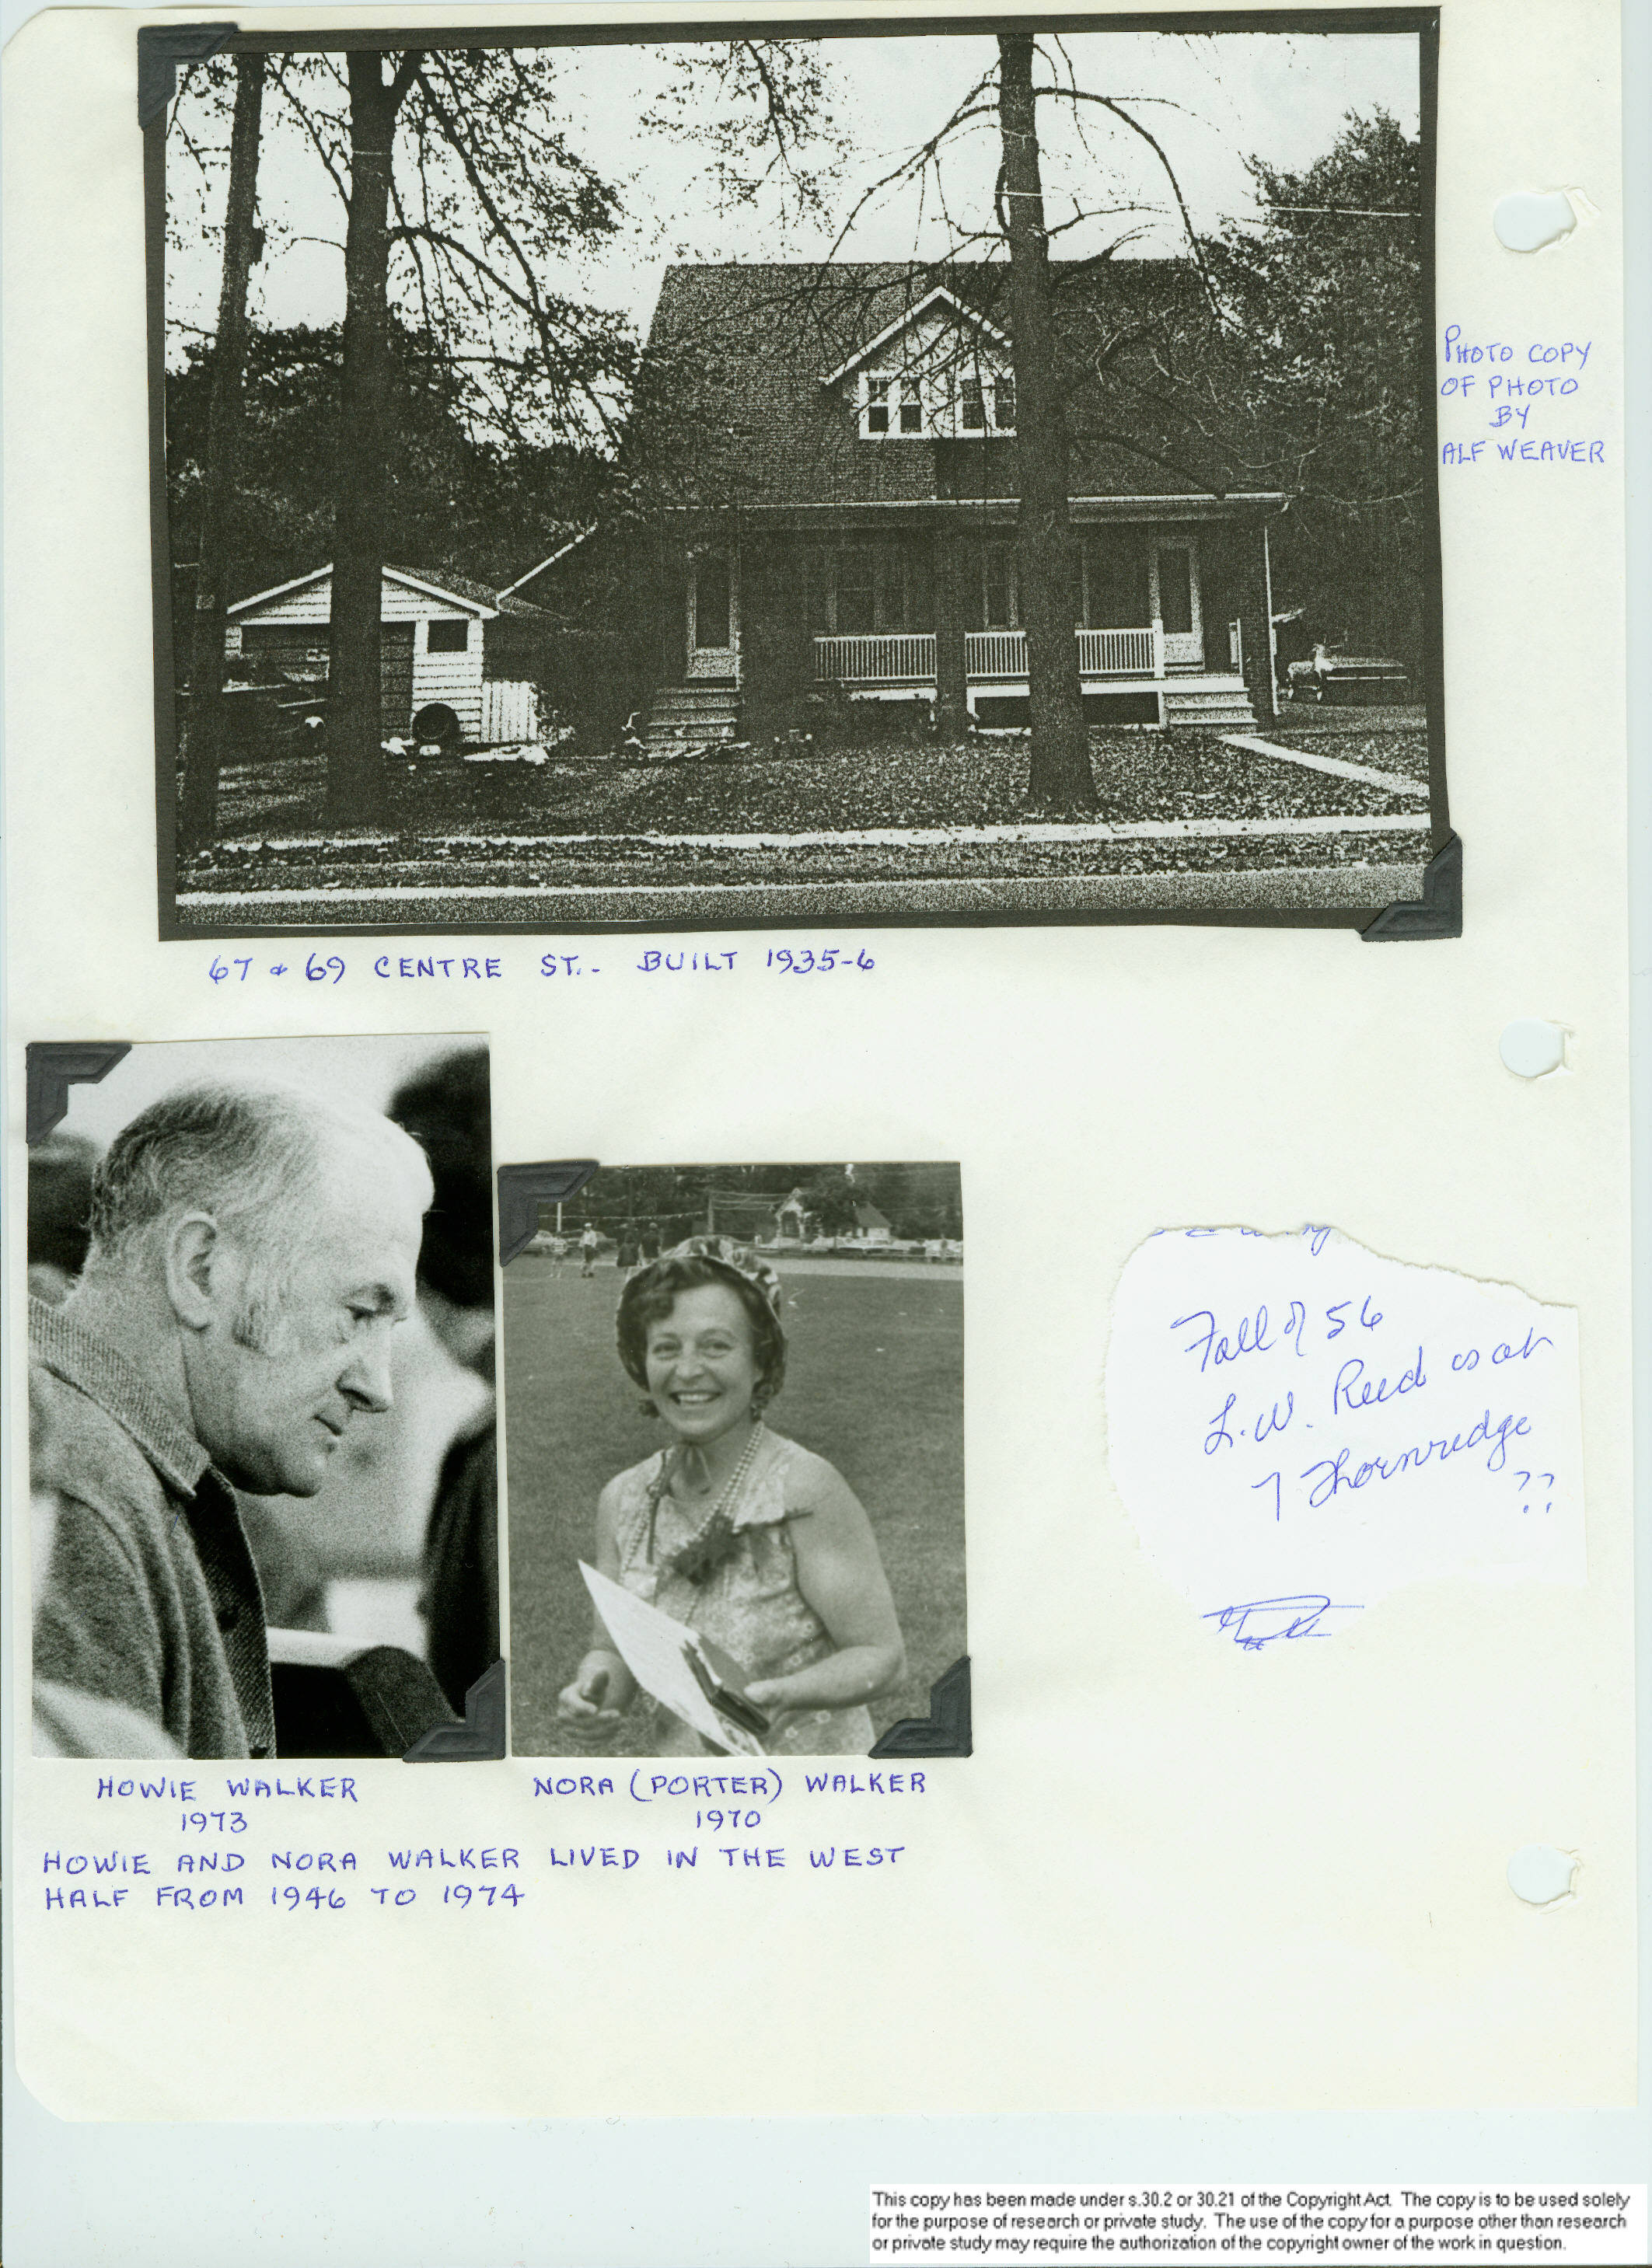 PHOTO COPY
OF PHOTO
BY
ALF WEAVER
67 & 69 CENTRE ST.. BUILT 1935-6
Fall of 56
L.W. Reed is at
7 Thornridge
??
HOWIE WALKER
1973
NORA (PORTER) WALKER
1970
HOWIE AND NORA WALKER LIVED IN THE WEST
HALF FROM 1946 TO 1974
This copy has been made under s.30.2 or 30.21 of the Copyright Act. The copy is to be used solely
for the purpose of research or private study. The use of the copy for a purpose other than research
or private study may require the authorization of the copyright owner of the work in question.